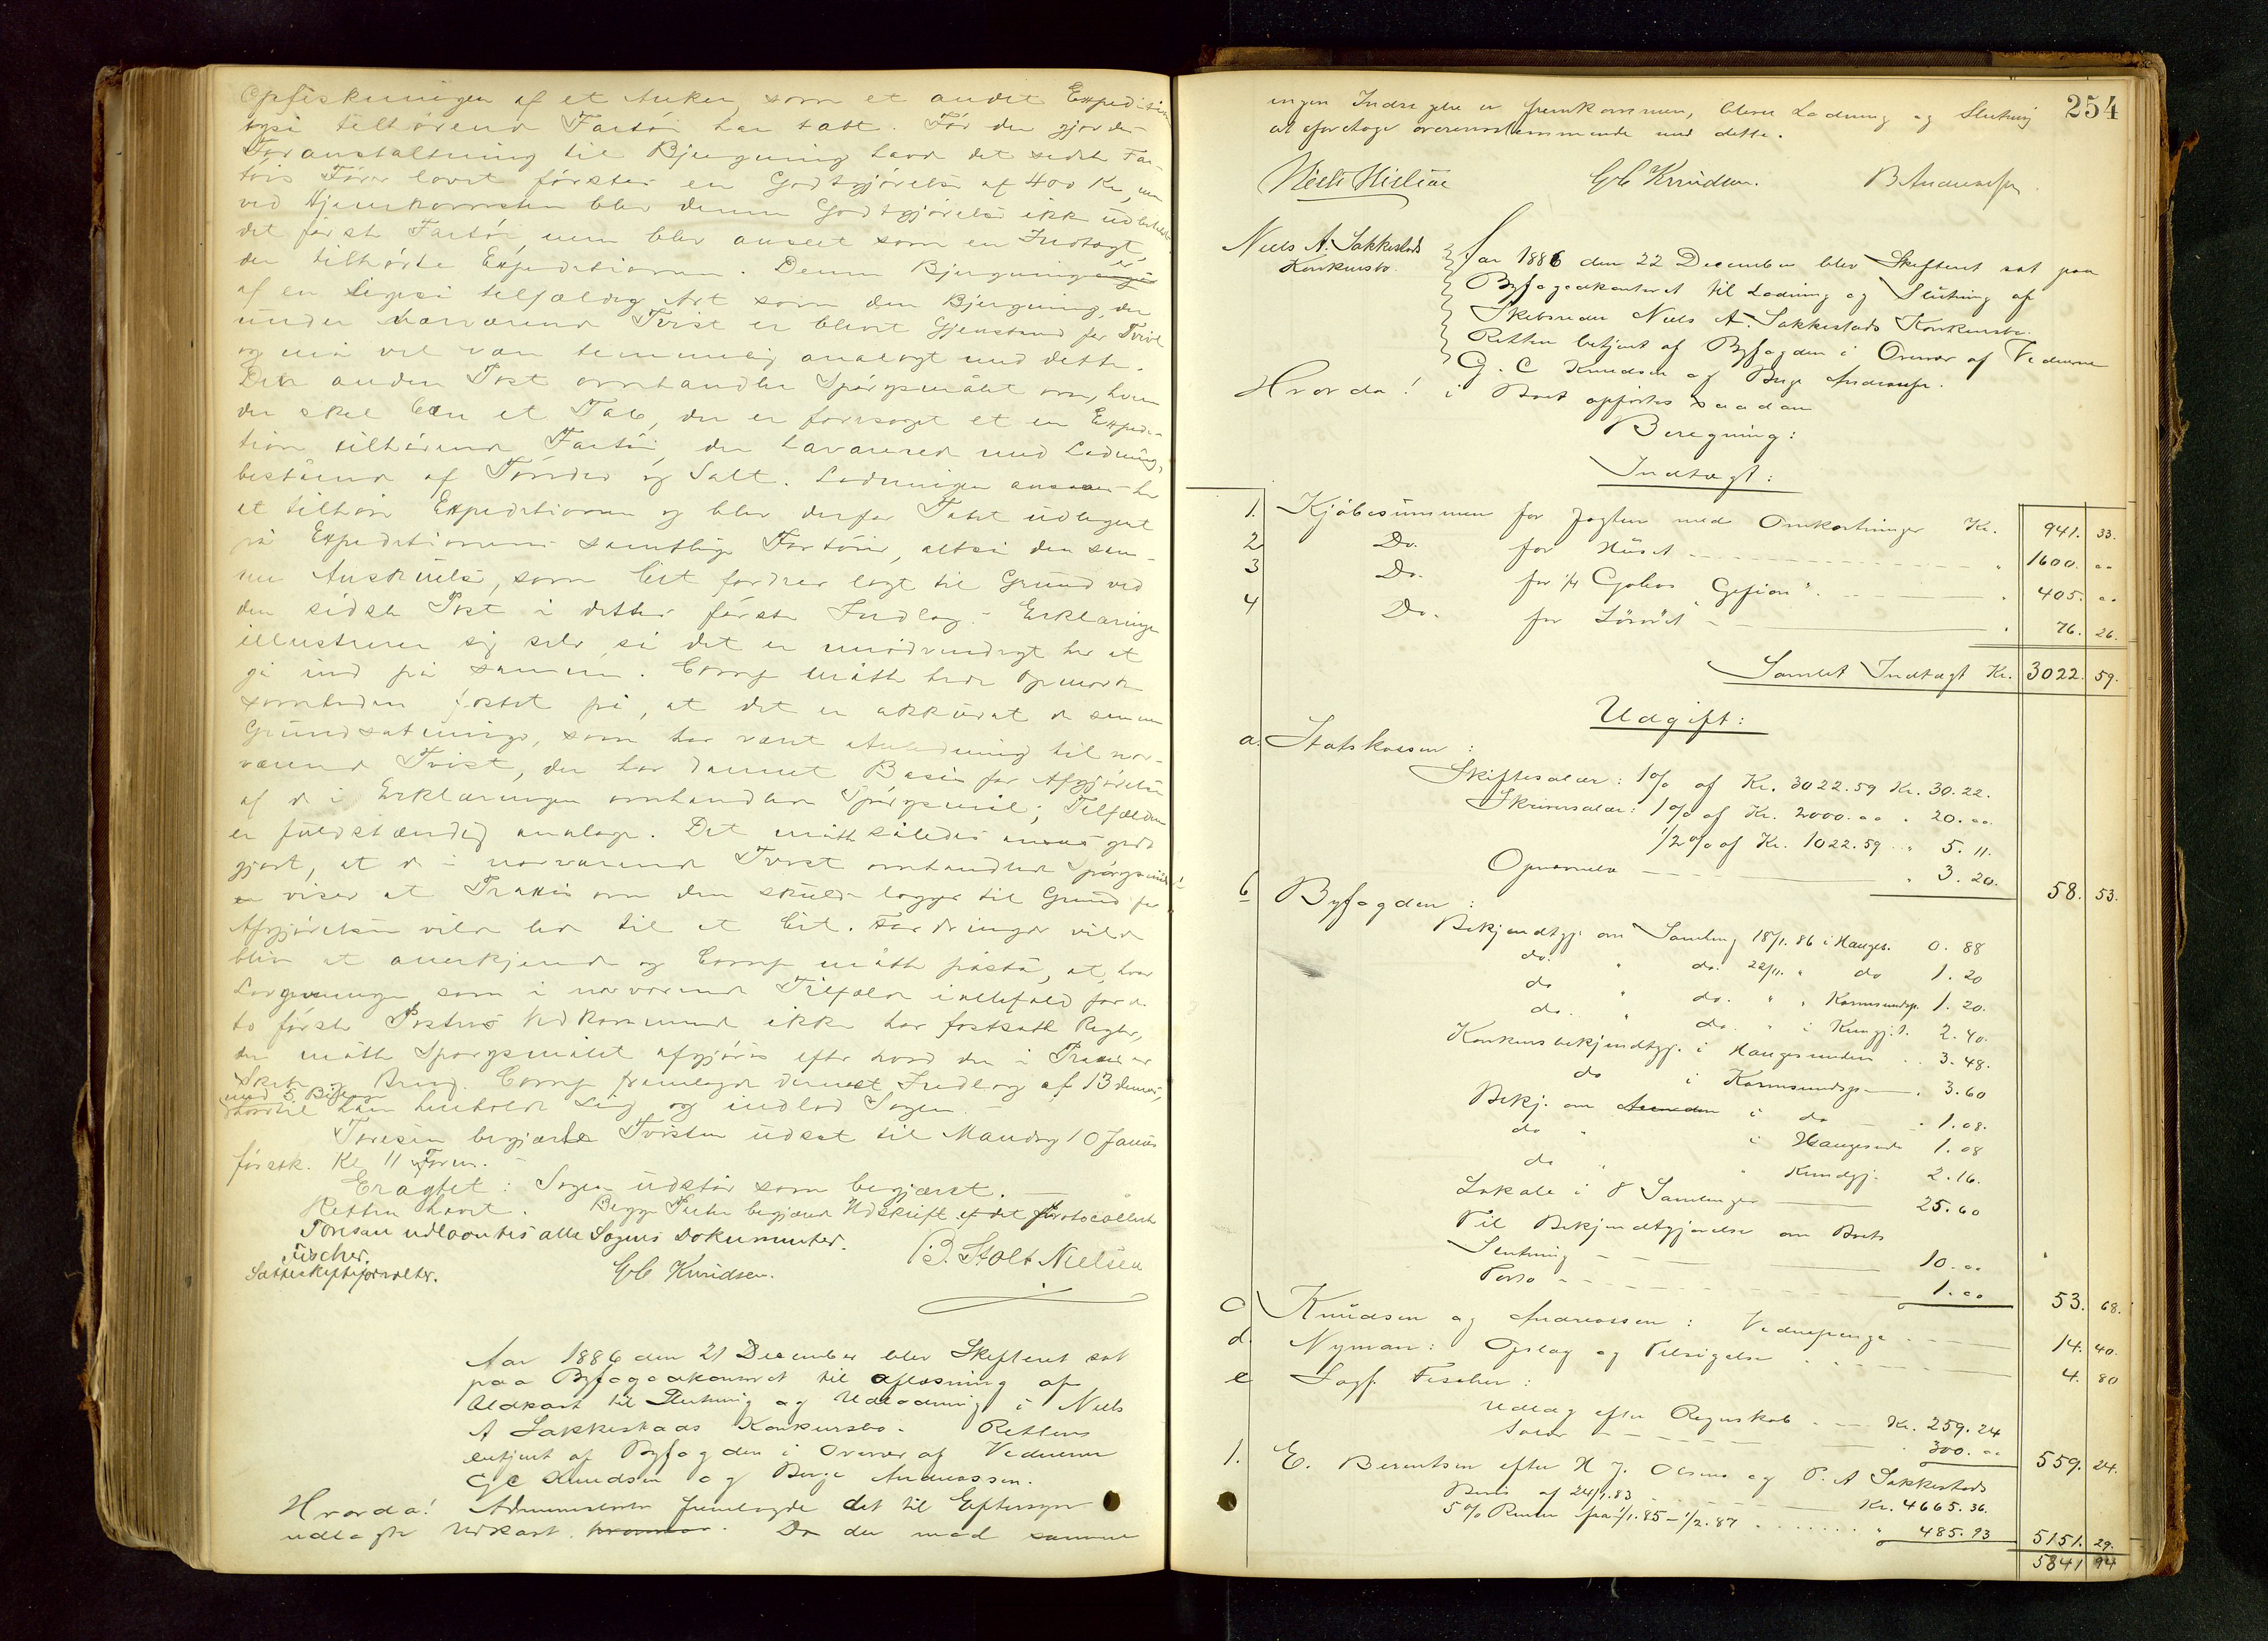 Opfiskningen af et Anker, som et andet Expeditionen
også tilhørende Fartöi har tabt. Før der gjordes
Foranstaltning til Bjergning havde det sidste Far-
töis Fører lovet förstes en Godtgjörelse af 400 Kr, men
ved Hjemkomsten blev denne Godtgjörelse ikke udbetalt
det förste Fartöi, men blev anseet som en Indtægt,
der tilhörte Expeditionen. Denne Bjergning er
af en ligeså tilfældig Art som den Bjergning, der
under nærværende Tvist er blevet Gjenstand for Tvivl
og må vel være temmelig analogt med dette.
Den anden Post omhandler Spörgsmålet om, hvem
der skal bære et Tab, der er forårsaget et en Expedi-
tion tilhörende Fartöi, der havarerede med Ladning,
bestående af Tönder og Salt. Ladningen ansees her
at tilhöre Expeditionen og blev derfor Tabet udlignet
på Expeditionens samtlige Fartöier, altså den sam-
me Anskuelse, som Cit fordrer lagt til Grund ved
den sidste Post i dettes förste Indlæg. Erklæringen
illustrerer sig selv, så det er unödvendigt her at
gå ind på samme. Comp måtte lede Opmærk-
somheden fæstet på, at det er akkurat de samme
Grundsætninger, som har været Anledning til nær-
værende Tvist, der har dannet Basis for Afgjörelsen
af de i Erklæringen omhandlede Spörgsmål; Tilfælden
er fuldstændig analoge. Det måtte således ansees godt-
gjort, at de i nærværende Tvist omhandlede Spörgsmål
viser at Praxis om den skulde lægges til Grund for
Afgjörelsen vilde lede til at Cit. Fordringer vilde
blive at anerkjende og Comp måtte påstå, at, hvor
Lovgivningen som i nærværende Tilfælde iallefald for de
to förste Posters Vedkommende ikke har fastsatte Regler,
der måtte Spörgsmålet afgjöres efter hvad der i Praxis er
Skik og Brug. Comp fremlagde dernæst Indlæg af 13 dennes,
med 5 Bilage
hvortil han henholdt sig og indlod Sagen. –
Toresen begjærte Tvisten udsat til Mandag 10 Januar
förstk. Kl 11 Form. –
Eragtet: Sagen udstår som begjæret.
Retten hævet. Begge Parter begjærede Udskrift af det Protocollerede
Toresen udlaantes alle Sagens Dokumenter.
Fischer.
Sætteskifteforvalter.
G C Knudsen.
B. Stolt Nielsen
Aar 1886 den 21 December blev Skifteret sat
paa Byfogedkontoret til aflæsning af
Udkast til Slutning og Udlodning i Niels
A Sakkestads Konkursbo. Retten
betjent af Byfogden i Overvær af Vidnerne
G C Knudsen og Berge Andreassen.
Hvorda! Administrator fremlagde det til Eftersyn
udlagte Udkast. Da der mod samme
254
ingen Indsigelse er fremkommen, bliver Lodning og Slutning
at foretage overensstemmende med dette.
Niels Nielsen G C Knudsen. B Andreassen.
Niels A. Sakkestads
Konkursbo.
Aar 1886 den 22 December blev Skifteret sat paa
Byfogedkontoret til Lodning og Slutning af
Skibsreder Niels A. Sakkestads Konkursbo.
Retten betjent af Byfogden i Overvær af Vidnerne
G. C Knudsen og Berge Andreassen.
Hvorda! i Boet opførtes saadan
Beregning:
Indtægt:
1. Kjöbesummen for Jagten med Omkostninger Kr. 941. 33.
2 Do. for Huset " 1600. 00
3 Do. for 1/4 Galeas "Gefion". " 405. 00
4 Do. for Lösöret " 76. 26.
Samlet Indtægt Kr. 3022. 59.
Udgift:
a. Statskassen:
Skiftesalær: 1 % af Kr. 3022.59 Kr. 30.22.
Skriversalær: 1 % af Kr. 2000.00 " 20.00.
1/2 % af Kr. 1022.59 " 5.11.
Opnævnelse " 3.20. 58. 53.
b Byfogden:
Bekjendtgj. om Samling 18/1.86 i Hauges. 0.88
do. " do. 22/11. " do 1.20
do " do. " " Karmsundsp. 1.20.
do. " do. " i Kungj.t. 2.40.
Konkursbekjendtgj. i Haugesunderen 3.48.
do i Karmsundsp. 3.60
Bekj. om i do " 1.08.
do " i Haugesund 1.08
do " " Kundgj. 2.16.
Lokale i 8 Samlinger 25.60
Til Bekjendtgjørelse om Boets
Slutning 10.00
Porto 1.00 53. 68.
c Knudsen og Andreassen: Vidnepenge 14. 40.
d. Nyman: Opslag og Tilsigelse 4. 80
e Sagf. Fischer:
Udlæg efter Regnskab Kr. 259.24
Salær " 300.00 559. 24.
1. E. Berentsen efter H J. Olsens og P. A Sakkestads
Bevis af 24/1.83 Kr. 4665.36.
5 % Renter fra 1/1.85 – 1/2.87 " 485.93 5151. 29.
5841 94